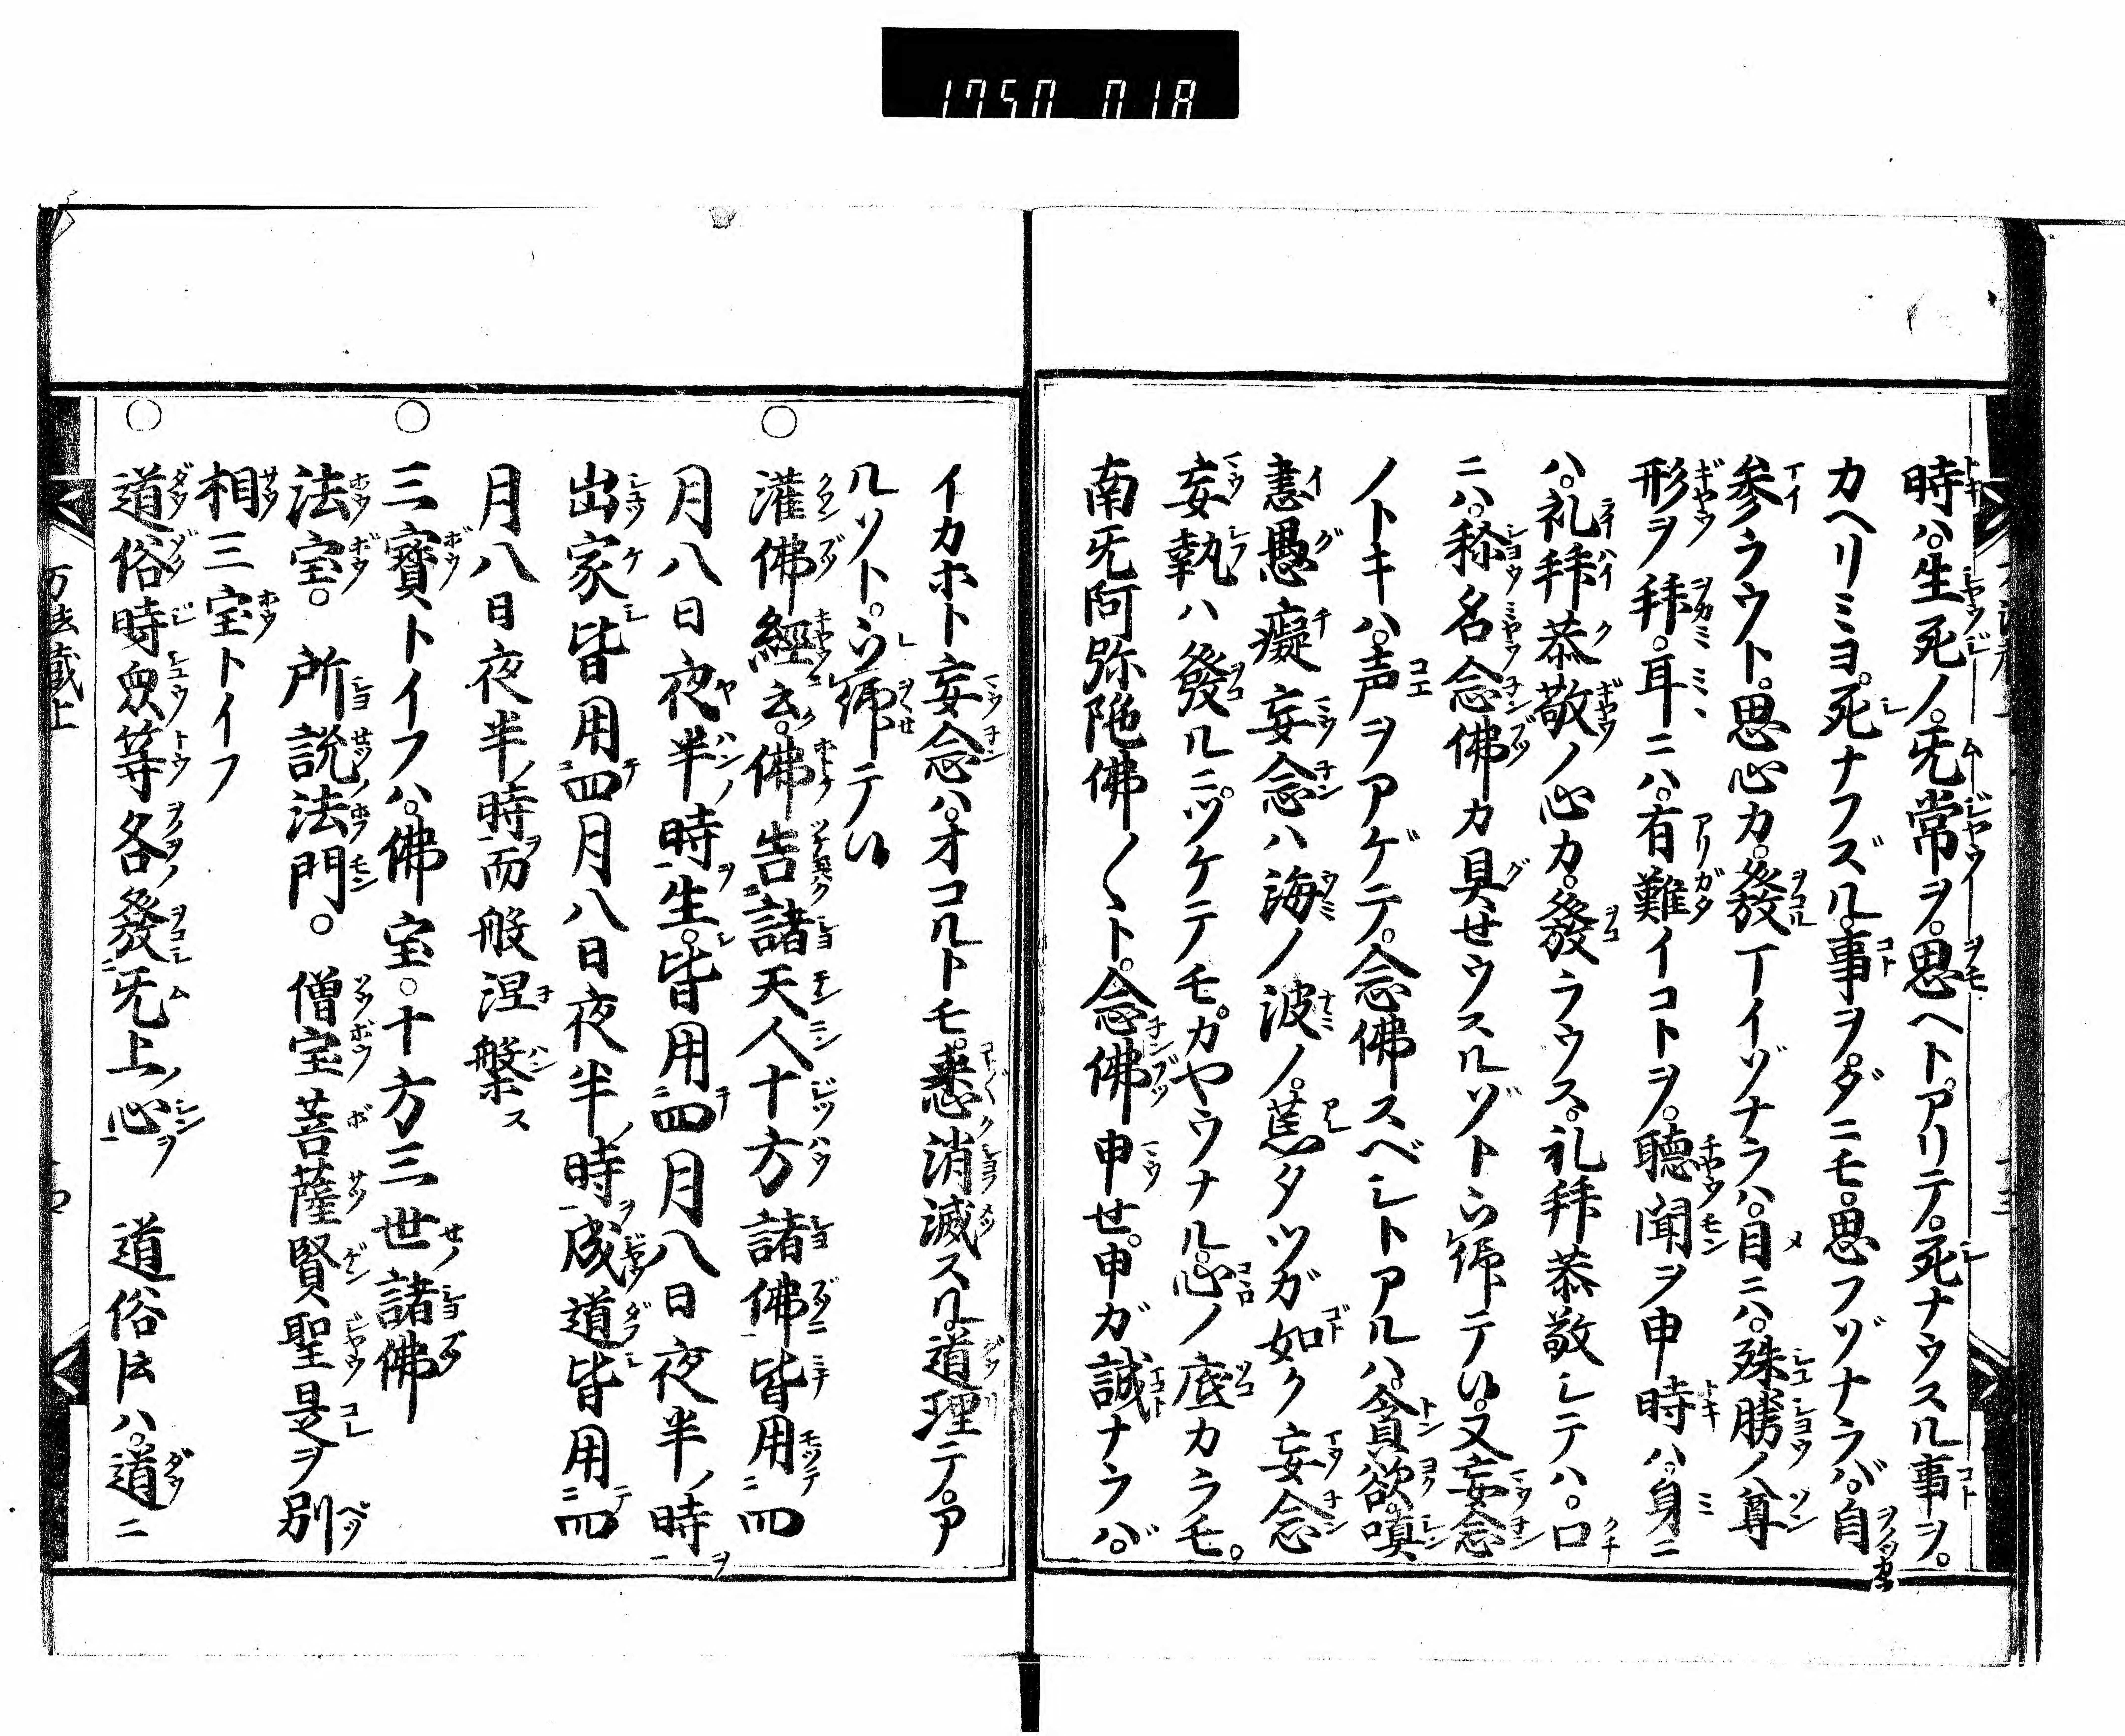 1750 018
時ハ。生死ノ。旡常ヲ。思ヘト。アリテ。死ナウスル事ヲ。
カヘリミヨ。死ナフズル。事ヲ。ダニモ。思フゾナラバ。自
参ラウト。思心カ。發丁イゾナラハ。目ニハ。殊勝ノ尊
形ヲ拜。耳ニハ。有難イコトヲ。聽聞ヲ申時ハ。身ニ
ハ。礼拜恭敬ノ心カ。發ラウス。礼拜恭敬シテハ。口
ニハ。称名念佛カ具せウスルゾトヲ
テ
。又妄念
ノトキハ。声ヲアゲテ。念佛スベシトアルハ。貪欲。嗔
恚愚癡妄念ハ海ノ波ノ。
タツガ如ク妄念
妄執ハ發ルニ。ツケテモ。カヤウナル。心ノ底カラモ。
南旡阿弥陁佛〱ト。念佛申せ。申ガ誠ナラハ。
イカホト妄念ハ。オコルトモ。悉消滅スル。道理テ。ア
ルゾト。
テ
灌佛經云。佛告諸天人十方諸佛皆用四
月八日夜半時生。皆用四月八日夜半時
出家皆用四月八日夜半時成道皆用四
月八日夜半時而般涅槃ス
三寳トイフハ。佛宝。十方三世諸佛
法宝。所説法門。僧宝菩薩賢聖是ヲ別
相三宝トイフ
道俗時衆等各發旡上心 道俗トハ。道ニ
万法蔵上